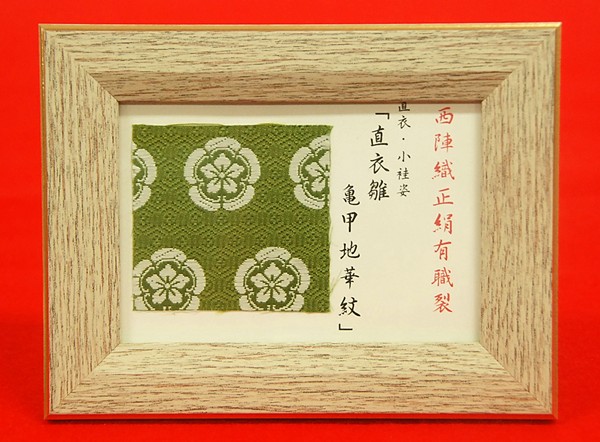 西陣織正絹有職裂
直衣・小袿姿
「直衣雛
亀甲地華紋」